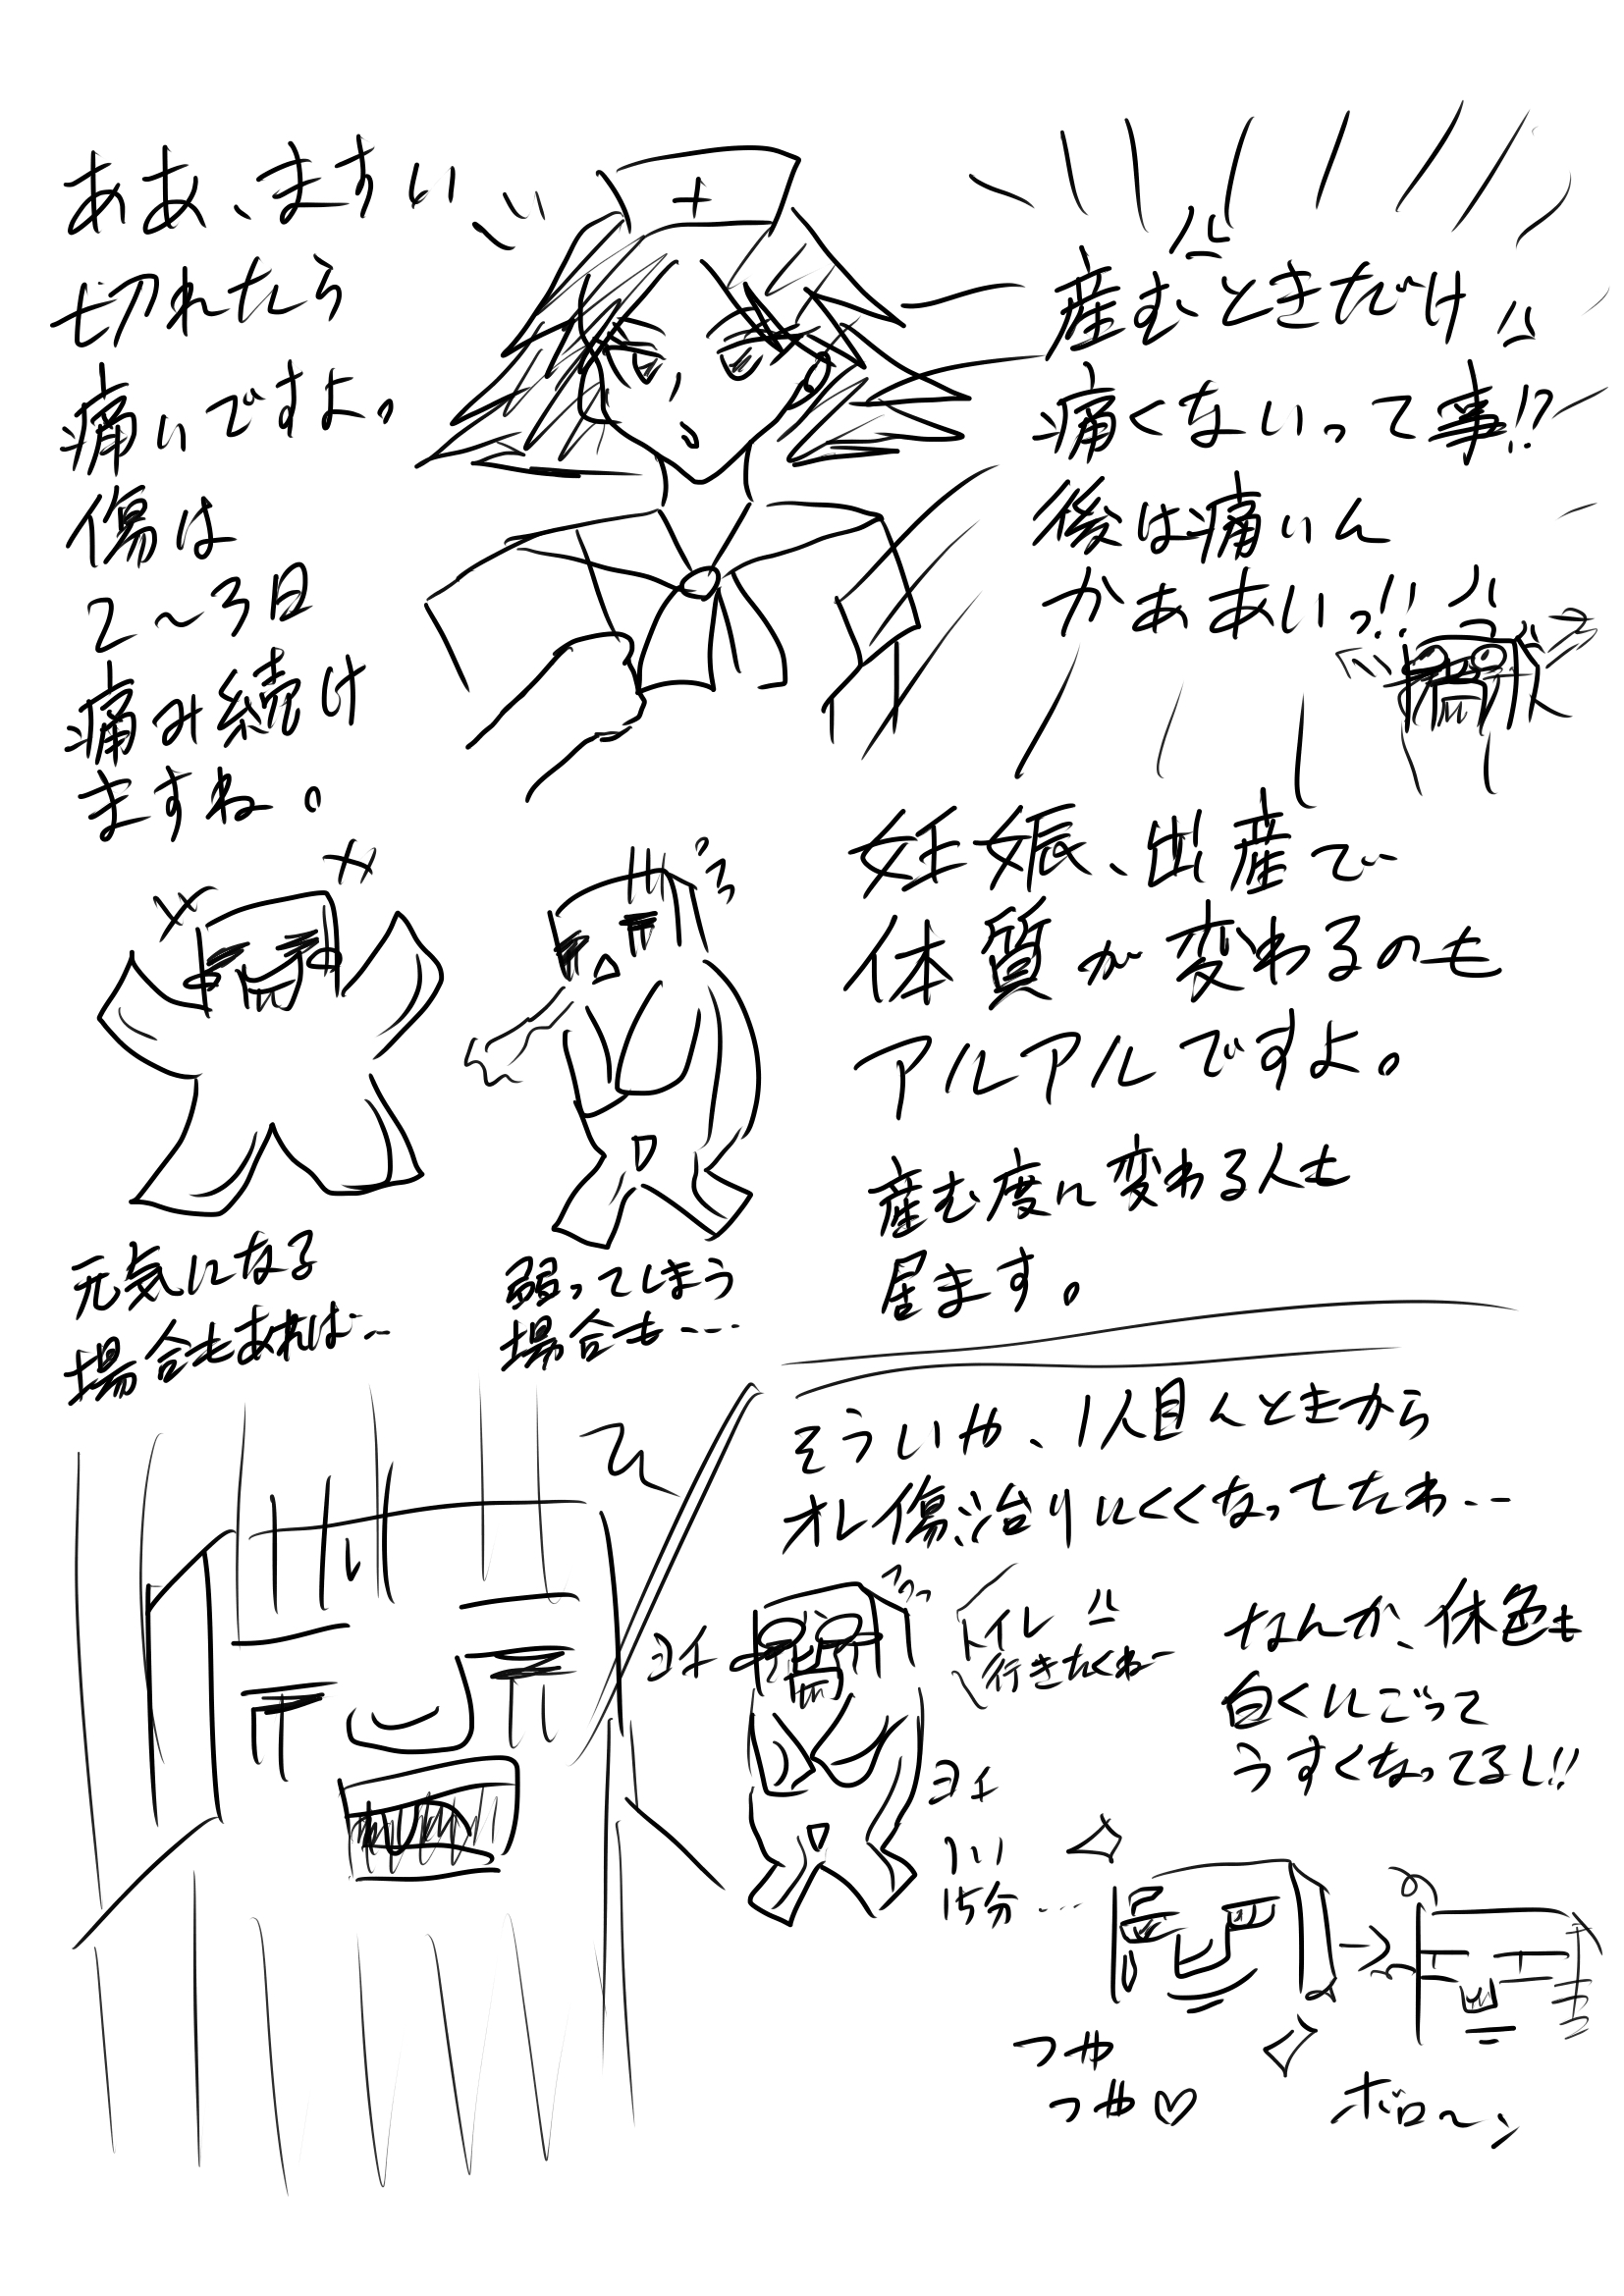 産むときだけ
痛くないって事!?
後は痛いん
かぁあいっ!!
ああ、ますい
切れたら
痛いですよ。
傷は
2〜3日
痛み続け
ますね。
妊娠、出産で
体質が変わるのも
アルアルですよ。
産む度に変わる人も
居ます。
弱ってしまう
場合も----
元気になる
場合もあれば…
そういや、1人目んときから
オレ傷治りにくくなってたわ…
なんか、体色も
白くにごって
うすくなってるし!!
トイレ
行きたくねー
ヨチ
ヨチ
15分…
つや
つや♡
ボロ〜ン